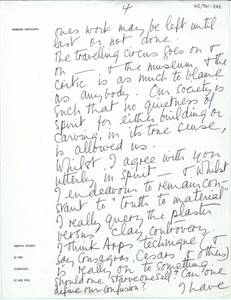 4
ones work may be left until
last or not done.
The travelling circus goes on &
on — & the museum, & the
critic is as much to blame
as anybody. Our society is
such that no quietness of
spirit for either building or
carving, in its true sense,
is allowed us.
Whilst I agree with you
utterly in spirit — & whilst
I endeavour to remain con-
stant to "truth to material"
I really query the plaster
versus clay controversy.
I think Arps technique (&
say Consagras, Cesars & others)
is really on to something
should one starve oneself? Can one
define our confusion?
I have